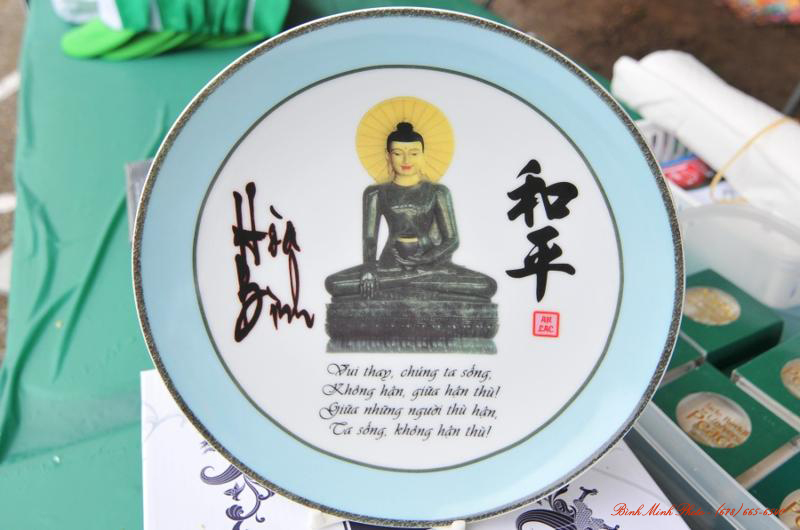 Hòa
Bình
和
平
AN
LAC
Vui thay, chúng ta sống,
Không hận, giữa hận thù!
Giữa những người thù hận,
Ta sống, không hận thù!